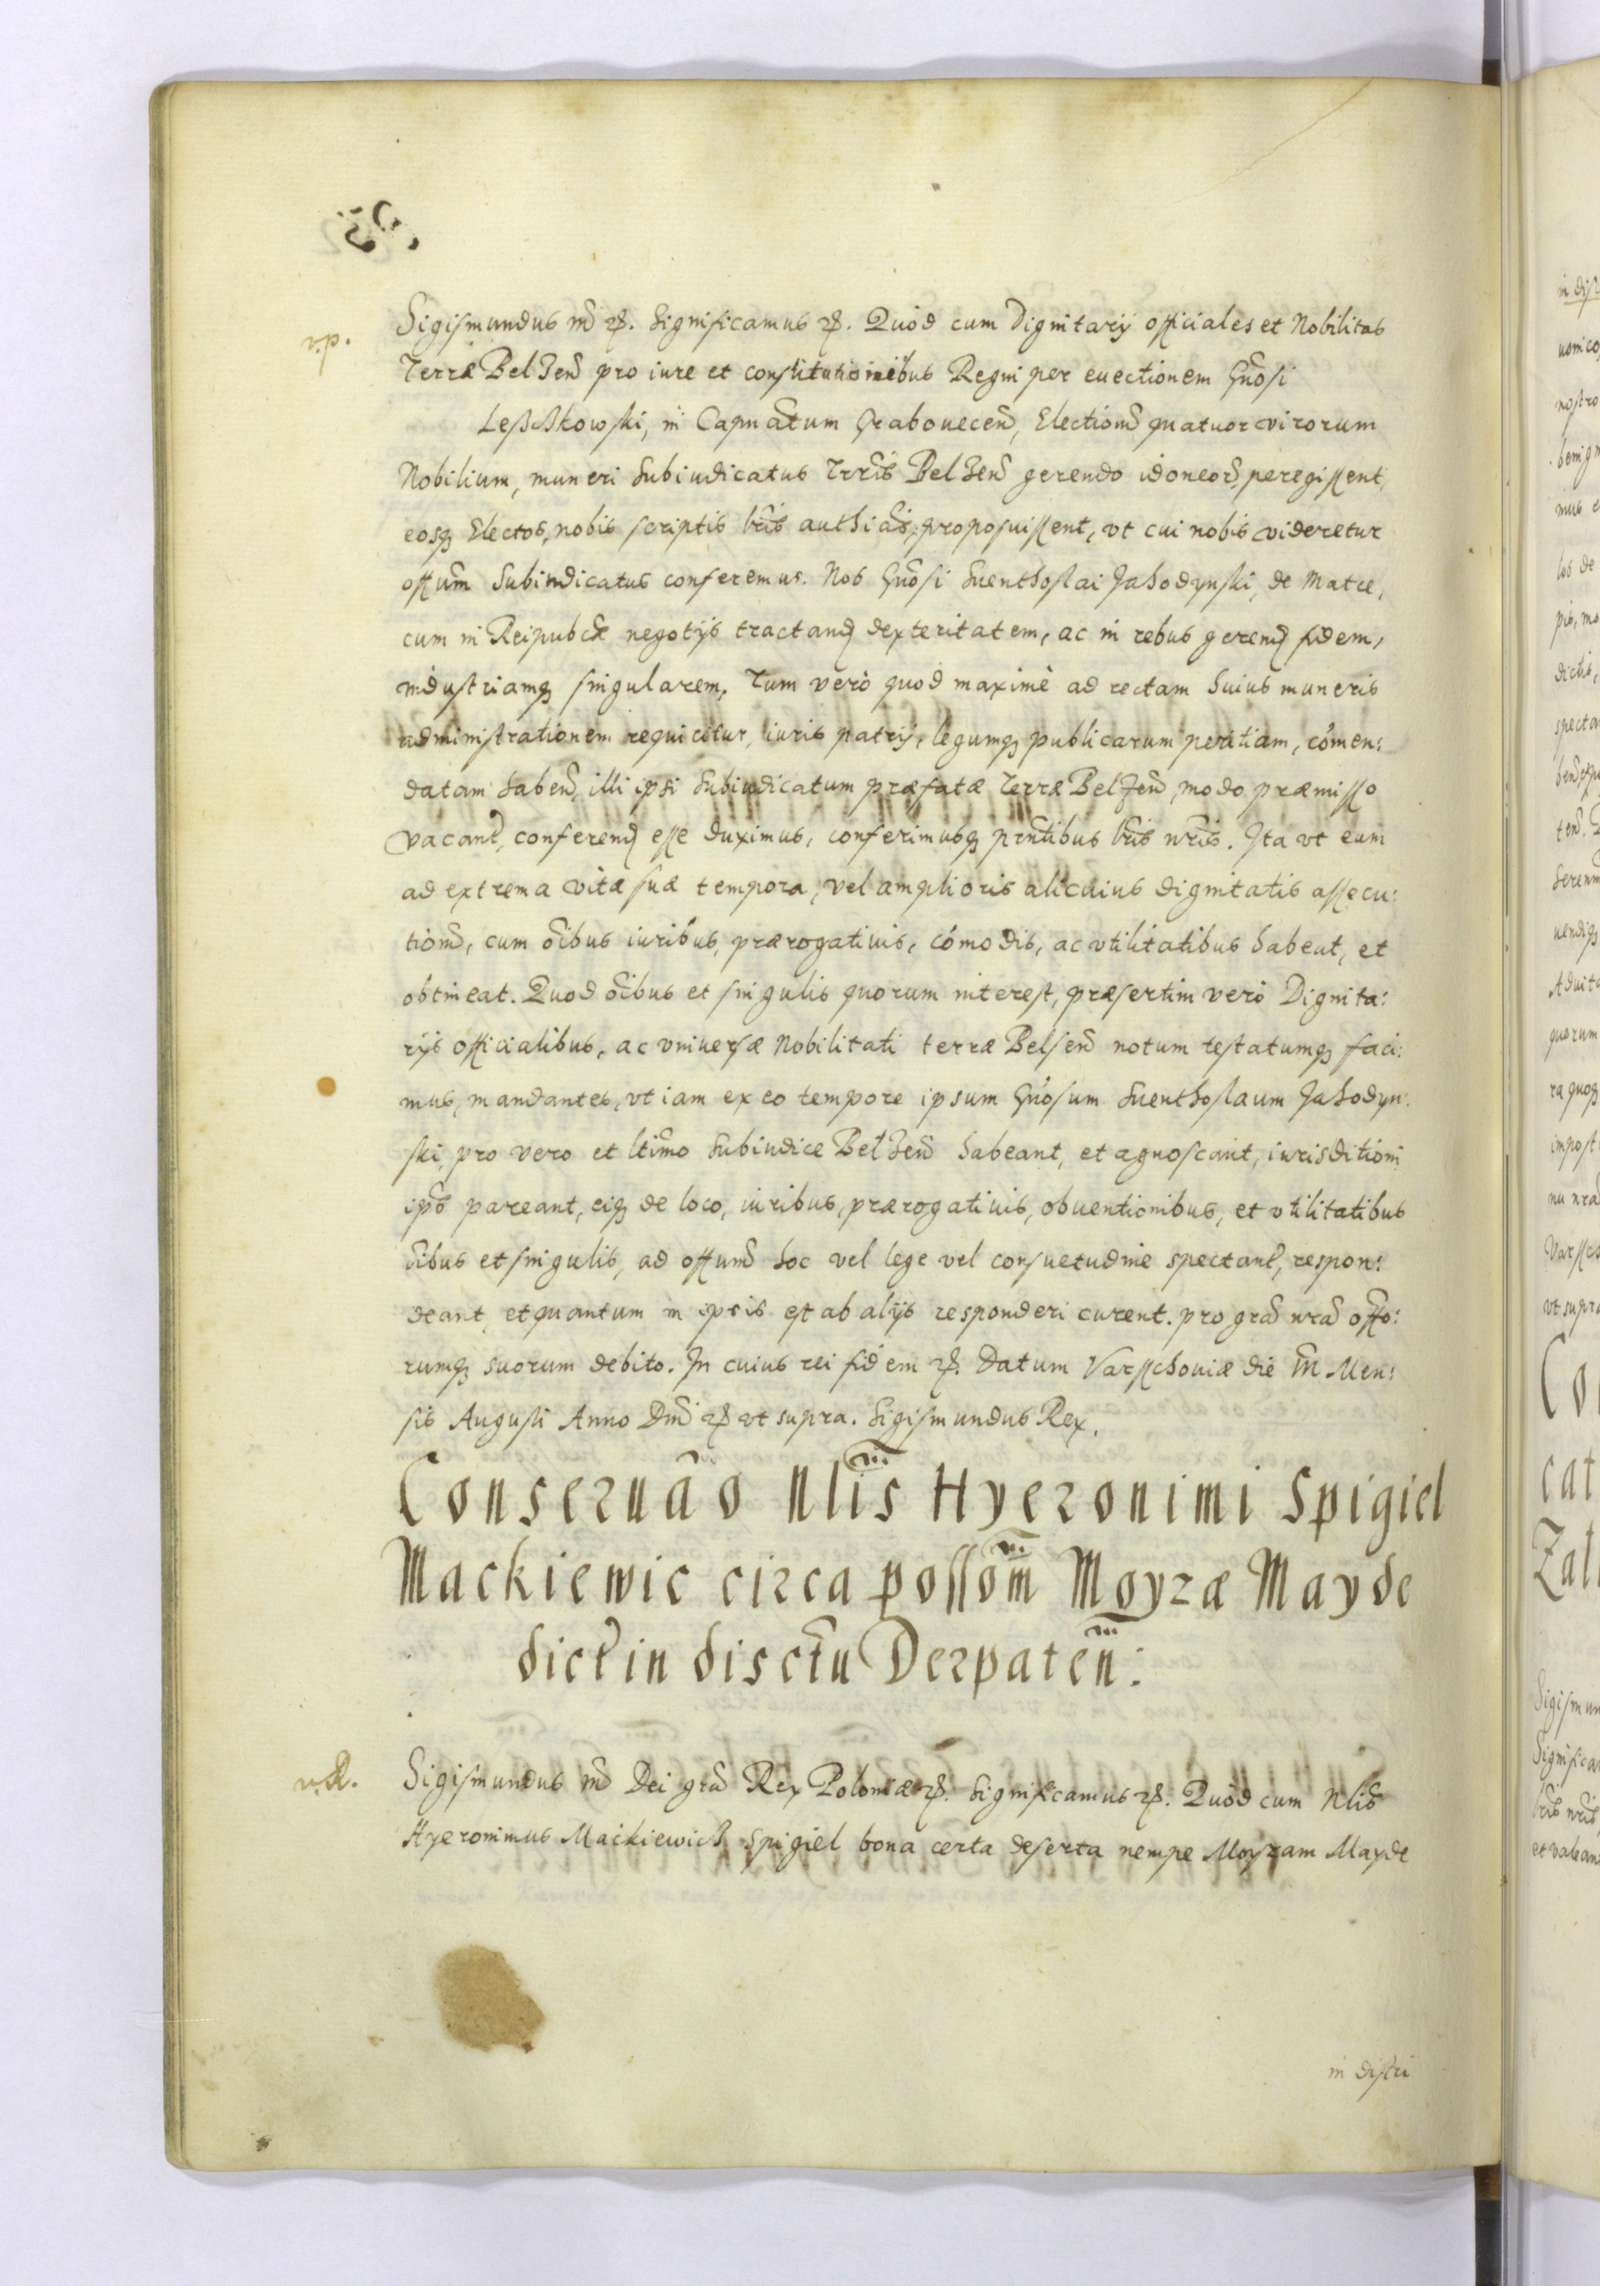 v.p.
Sigismundus 3us etc. Significamus etc. Quód cum Dignitarij officiales et Nobilitas
Terræ Belzen̄ pro iure et constitutionibus Regni per euectionem Gn̄osi
Lesczkowski, in Capn̄atum Grabouecen̄, Election̄ quatuor virorum
Nobilium, muneri Subiudicatus Trr̄is Belzen̄ gerendo idoneor̄, peregissent,
eosq Electos, nobis scriptis lr̄is authicis, proposuissent, vt cui nobis videretur
offūm Subiudicatus conferemus. Nos Gn̄osi Suenthoslai Jahodynski, de Matce,
cum in Reipubcæ negotijs tractand dexteritatem, ac in rebus gerend fidem,
industriamq singularem, Tum veró quod maximè ad rectam huius muneris
administrationem requiritur, iuris patrij, legumq publicarum peritiam, cōmen:
datam haben̄, illi ipsi Subiudicatum præfatæ Terræ Belzen̄, modo præmisso
vacant, conferend esse duximus, conferimusq pn̄tibus lr̄is nr̄is. Ita vt eum
ad extrema vitæ suæ tempora, vel amplioris alicuius dignitatis assecu:
tion̄, cum oībus iuribus, prærogatiuis, cōmodis, ac vtilitatibus habeat, et
obtineat. Quod oībus et singulis quorum interest, præsertim veró Dignita:
rijs officialibus, ac vniuersæ Nobilitati terræ Belsen̄ notum testatumq faci:
mus, mandantes, vt iam ex eo tempore ipsum Gn̄osum Suenthoslaum Jahodyn:
ski, pro vero et ltīmo Subiudice Belzen̄ habeant, et agnoscant, iurisditioni
ip̄s pareant, eiq de loco, iuribus, prærogatiuis, obuentionibus, et vtilitatibus
oībus et singulis, ad offum̄ hoc vel lege vel consuetudine spectant, respon:
deant, et quantum in ipsis est ab alijs responderi curent. pro grā nrā offō:
rumq suorum debito. In cuius rei fidem etc. Datum Varsschouiæ die Men:
sis Augusti Anno Dn̄i etc vt supra. Sigismundus Rex.
Conseruāo Nlīs Hyeronimi Spigiel
Mackiewic circa possom̄ Moyzæ Mayde
dict in disctū Derpaten̄:
v.R.
Sigismundus 3us Dei grā Rex Poloniæ etc. Significamus etc. Quód cum Nlīs
Hyeronimus Mackiewicz Spigiel bona certa deserta nempe Moyzam Mayde
in distri